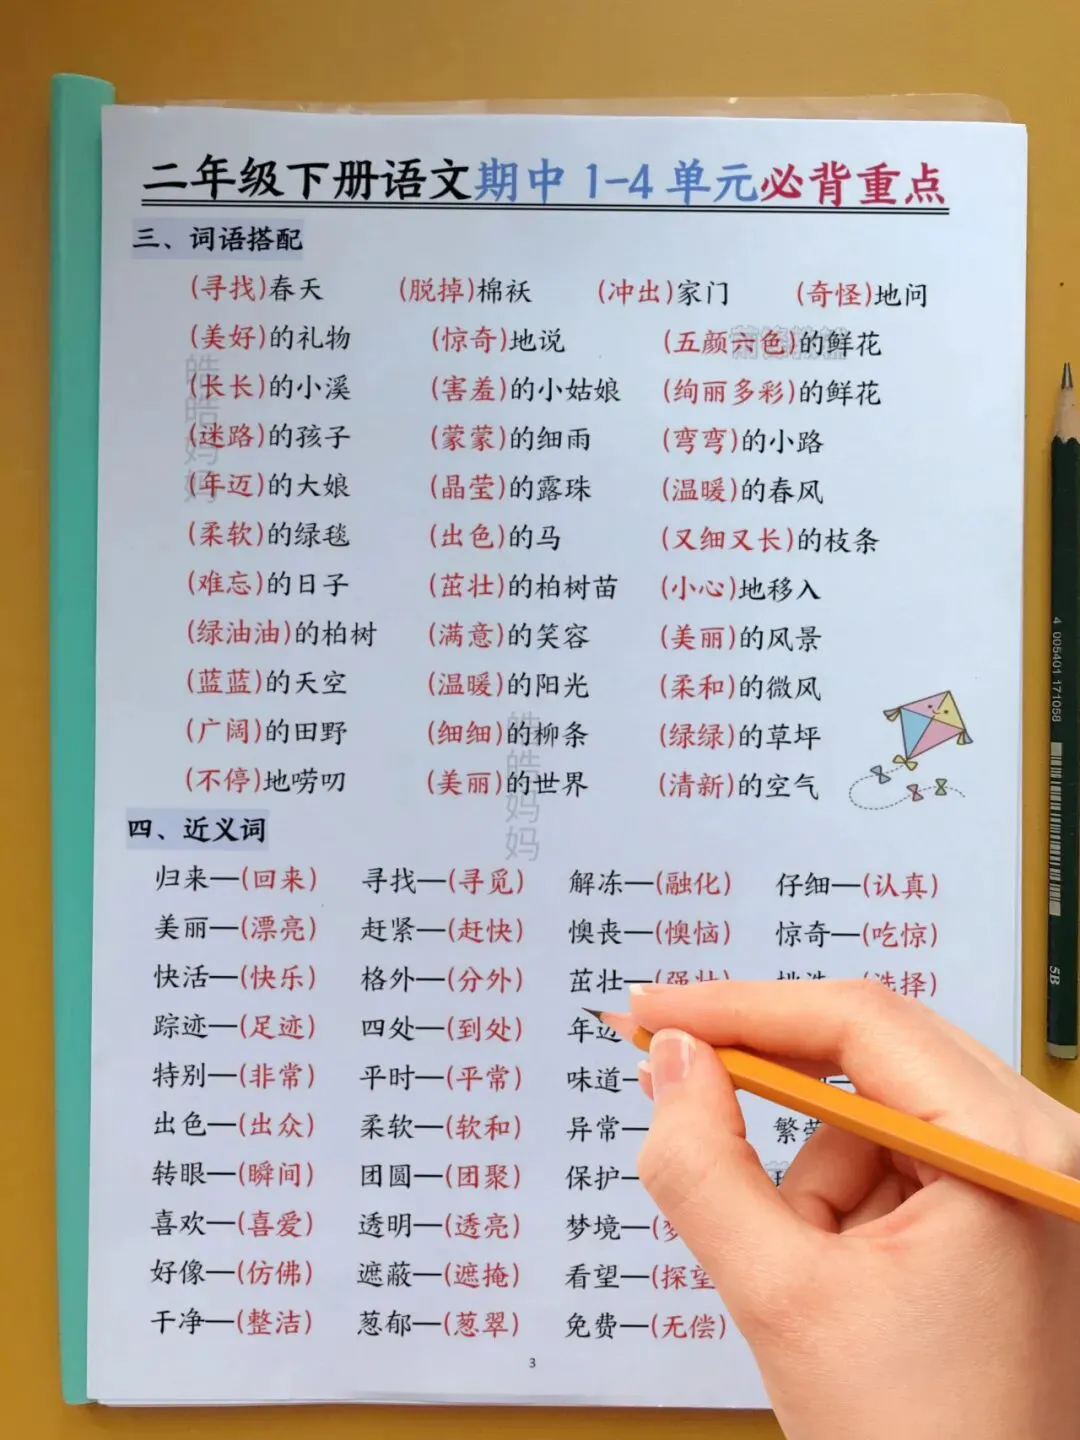 二年级下册语文期中1-4单元必背重点
三、词语搭配
(寻找)春天 (脱掉)棉袄 (冲出)家门 (奇怪)地问
(美好)的礼物 (惊奇)地说 (五颜六色)的鲜花
(长长)的小溪 (害羞)的小姑娘 (绚丽多彩)的鲜花
(迷路)的孩子 (蒙蒙)的细雨 (弯弯)的小路
(年迈)的大娘 (晶莹)的露珠 (温暖)的春风
(柔软)的绿毯 (出色)的马 (又细又长)的枝条
(难忘)的日子 (茁壮)的柏树苗 (小心)地移入
(绿油油)的柏树 (满意)的笑容 (美丽)的风景
(蓝蓝)的天空 (温暖)的阳光 (柔和)的微风
(广阔)的田野 (细细)的柳条 (绿绿)的草坪
(不停)地唠叨 (美丽)的世界 (清新)的空气
皓皓妈妈
皓皓妈妈
四、近义词
归来—(回来) 寻找—(寻觅) 解冻—(融化) 仔细—(认真)
美丽—(漂亮) 赶紧—(赶快) 懊丧—(懊恼) 惊奇—(吃惊)
快活—(快乐) 格外—(分外) 茁壮—(强壮) 挑选—(选择)
踪迹—(足迹) 四处—(到处) 年迈
特别—(非常) 平时—(平常) 味道—
出色—(出众) 柔软—(软和) 异常— 繁荣
转眼—(瞬间) 团圆—(团聚) 保护—
喜欢—(喜爱) 透明—(透亮) 梦境—
好像—(仿佛) 遮蔽—(遮掩) 看望—(探望
干净—(整洁) 葱郁—(葱翠) 免费—(无偿)
3
4 005401 171058
5B